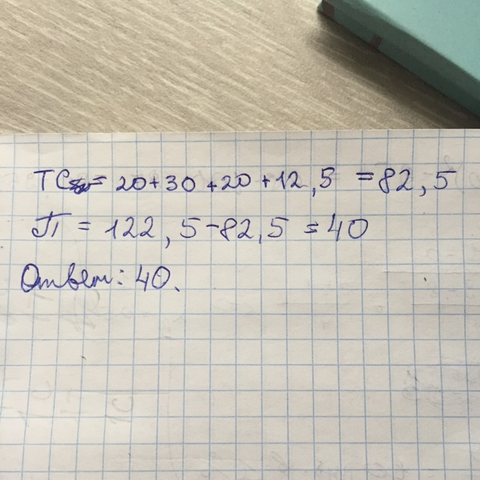 TC = 20+30+20+12,5 = 82,5
П = 122,5-82,5 = 40
Ответ: 40.